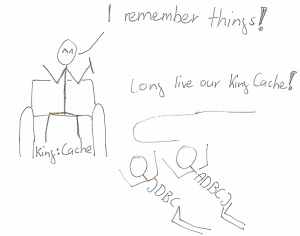 I remember things!
Long live our King Cache!
King:Cache
JDBC
ADBCJ